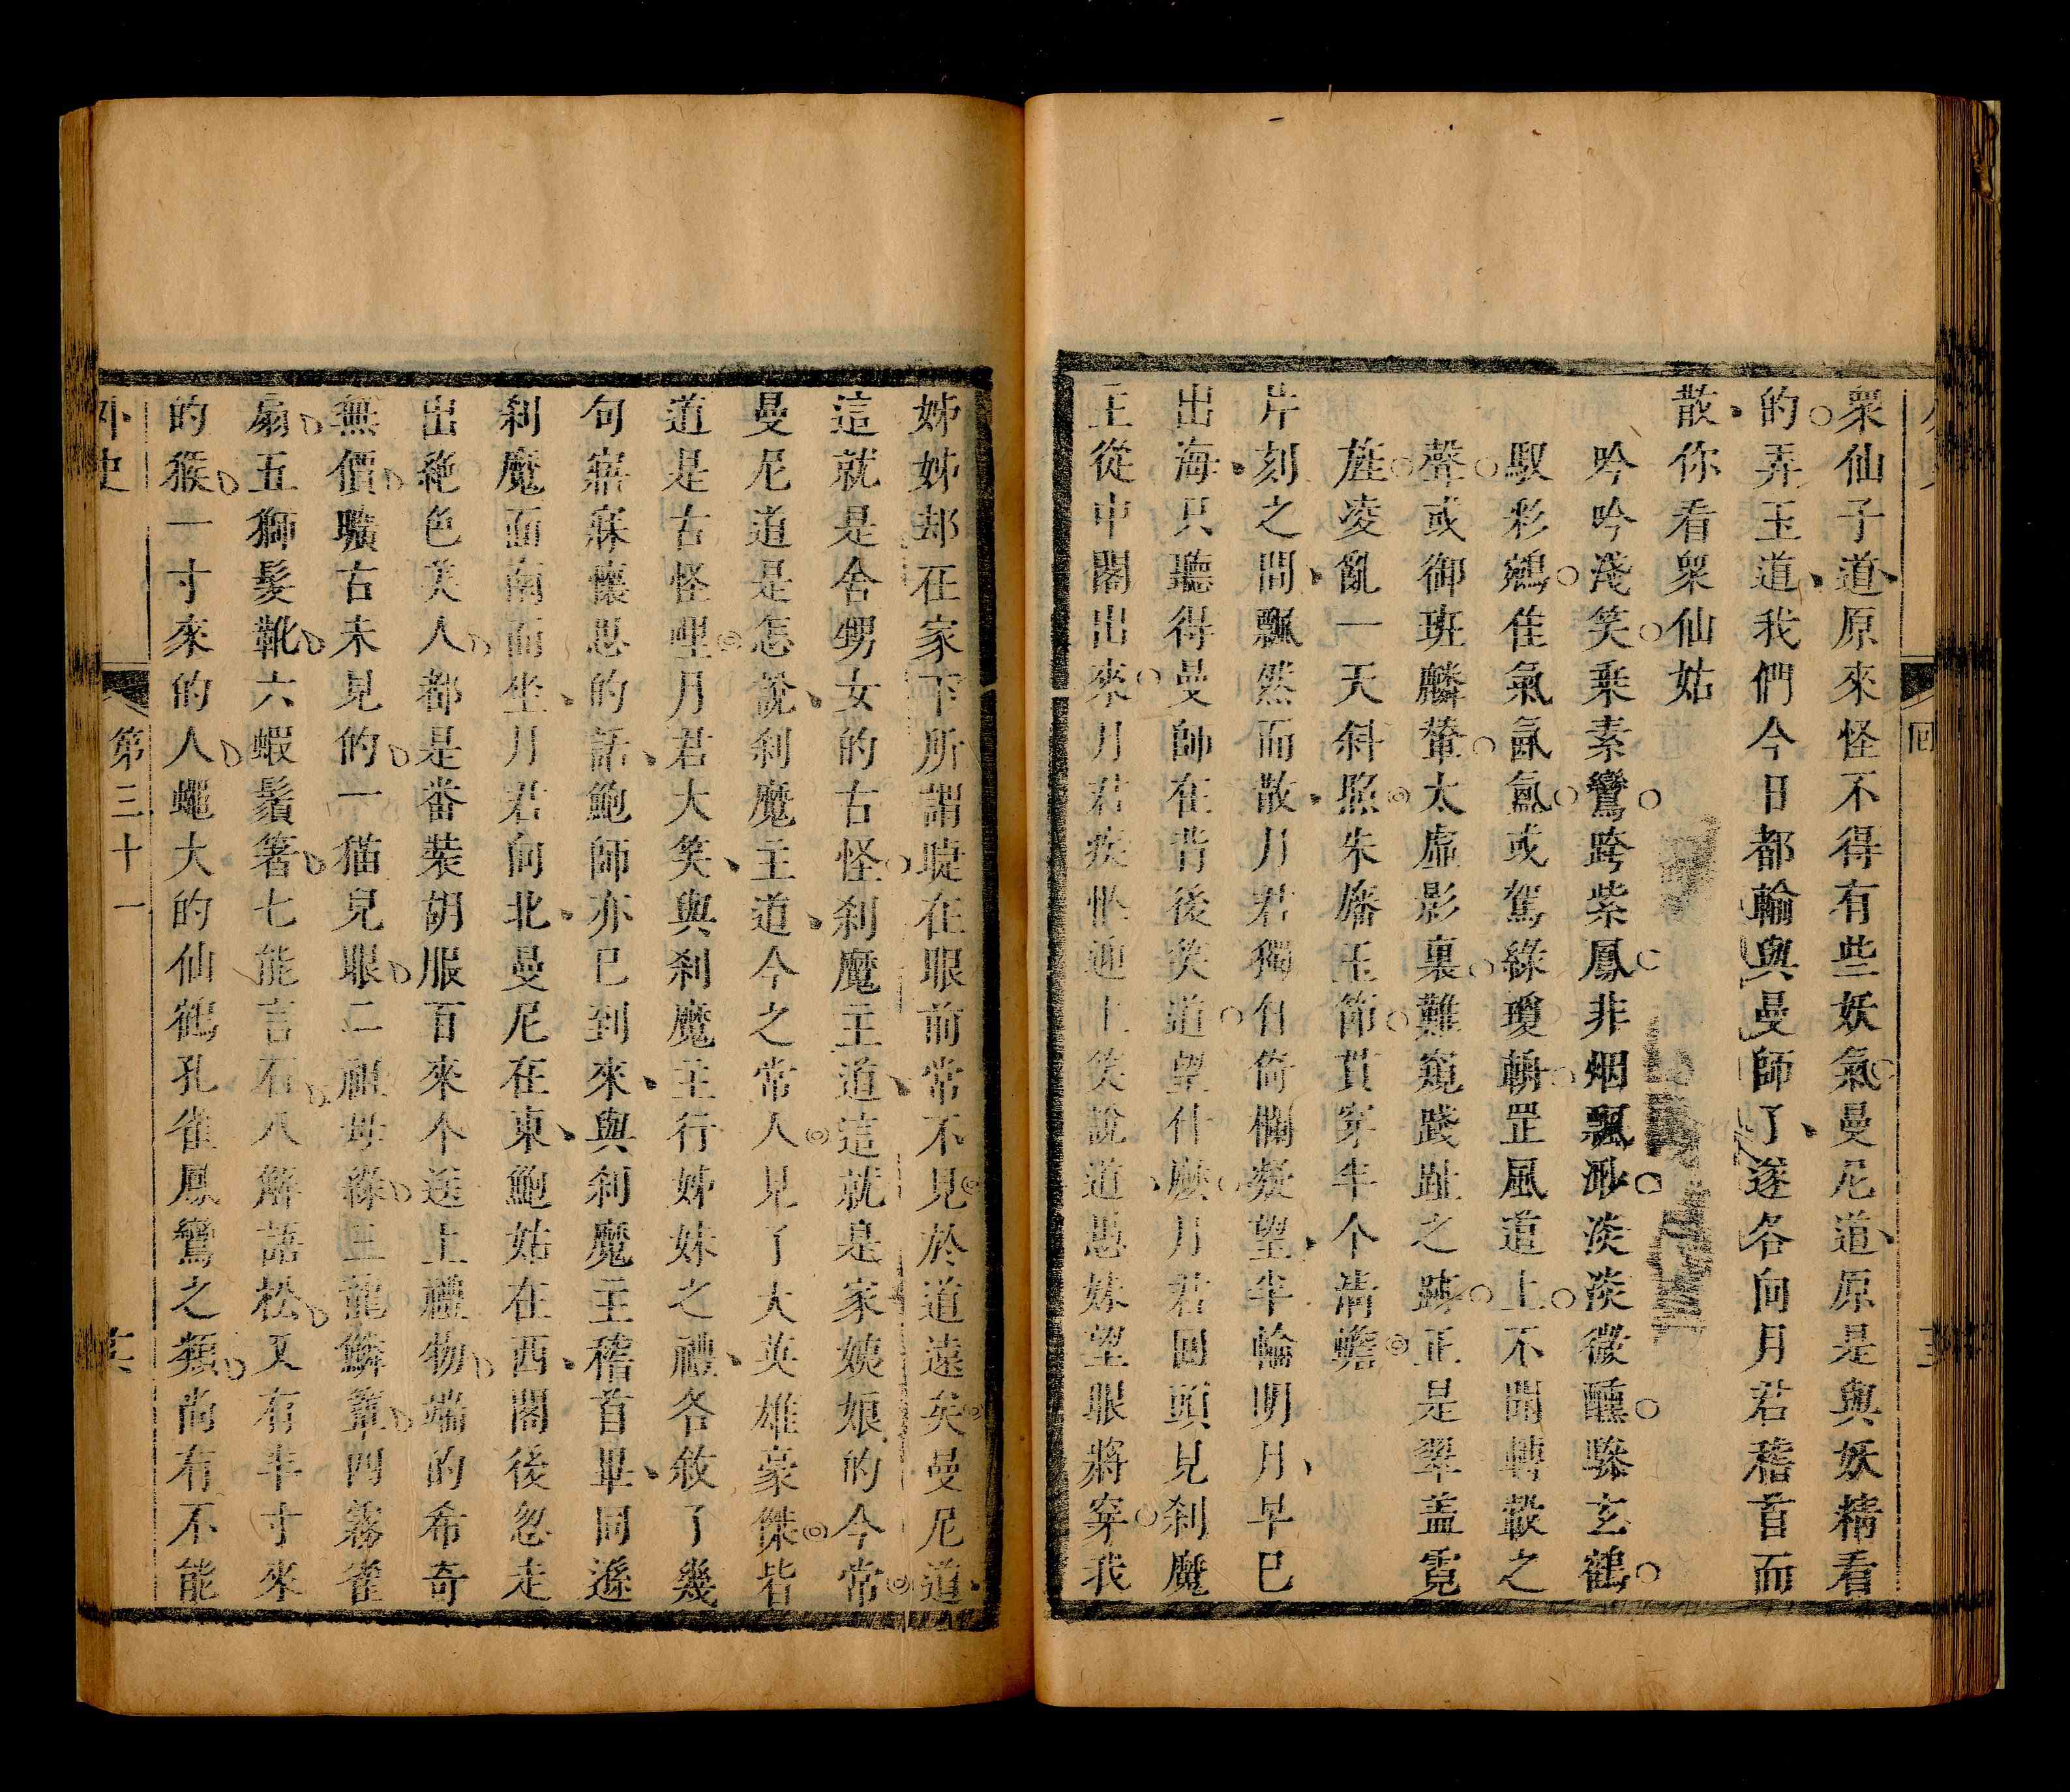 衆仙子道原來怪不得有些妖氣曼尼道原是與妖精看
的弄玉道我們今日都輸與曼師了遂各向月君稽首而
散你看衆仙姑
吟吟淺笑乘素鸞跨紫鳳非烟飄渺淡淡微醺驂玄鶴
馭彩鵷佳氣氤氳或駕綠瓊輈罡風道上不聞轉轂之
聲或御班麟輦太虛影裏難窺踐趾之跡正是翠盖霓
旌凌亂一天斜照朱旛玉節貫穿半个清蟾
片刻之間飄然而散月君獨自倚欄凝望半輪明月早巳
出海只聽得曼師在背後笑道望什麽月君回頭見刹魔
主從中閣出來月君疾忙迎上笑說道愚妹望眼將穿我
姊姊却在家下所謂睫在眼前常不見於道遠矣曼尼道
這就是舍甥女的古怪刹魔主道這就是家姨娘的今常
曼尼道是怎說刹魔主道今之常人見了大英雄豪傑皆
道是古怪哩月君大笑與刹魔主行姊妹之禮各敘了幾
句寤寐懷思的話鮑師亦已到來與刹魔主稽首畢同遜
刹魔面南而坐月君向北曼尼在東鮑姑在西閣後忽走
出絶色美人都是番裝胡服百來个送上禮物端的希奇
無價曠古未見的一猫兒眼二祖母綠三龍鱗簟四翡雀
扇五獅髮靴六蝦鬚箸七能言石八解語松又有半寸來
的猴一寸來的人蠅大的仙鶴孔雀鳳鸞之類尚有不能
外史
第三十一